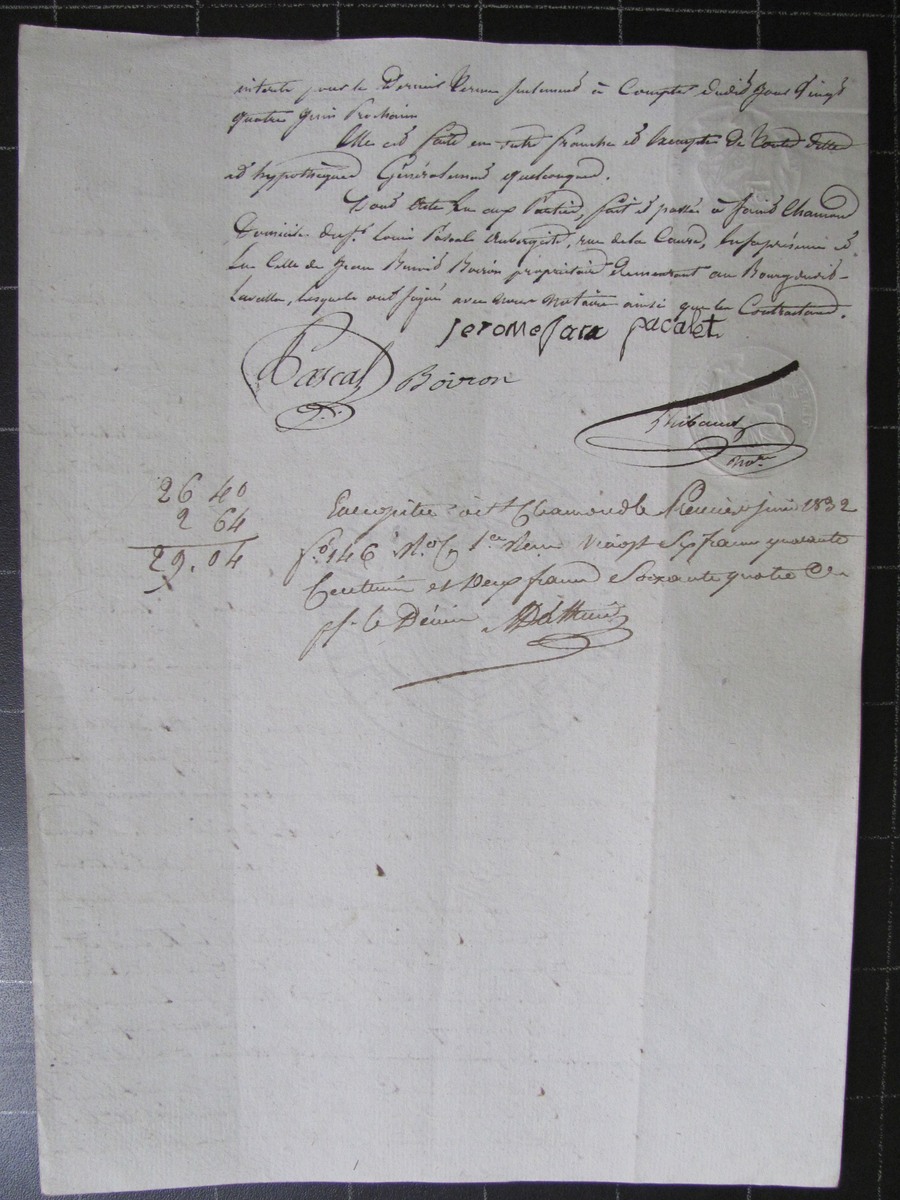 pour le Dernier terme seulement à Compter dudit jour vingt
quatre juin Prochain
Elle est faite en outre franche et Exempte de toutes dettes
et hypothèques Généralement quelconques.
Dont Acte Lu aux Parties, fait et passé à Saint Chamond
Domicile du Sr Louis Pascal Aubergiste, rue de la Course, lui présent et
En Celle de Jean Benoit Boiron propriétaire Demeurant au Bourg dudit
Lavalla, lesquels ont signé avec nous Notaire ainsi que les Contractans.
jerome jara pacalet
Pascal Boiron
Thibaud
Nore
26 40
2 64
29.04
Enregistré à St Chamond le Premier juin 1832
fo 146 Ro C
francs quarante
Centimes et Deux francs Soixante quatre
pr le Dixième